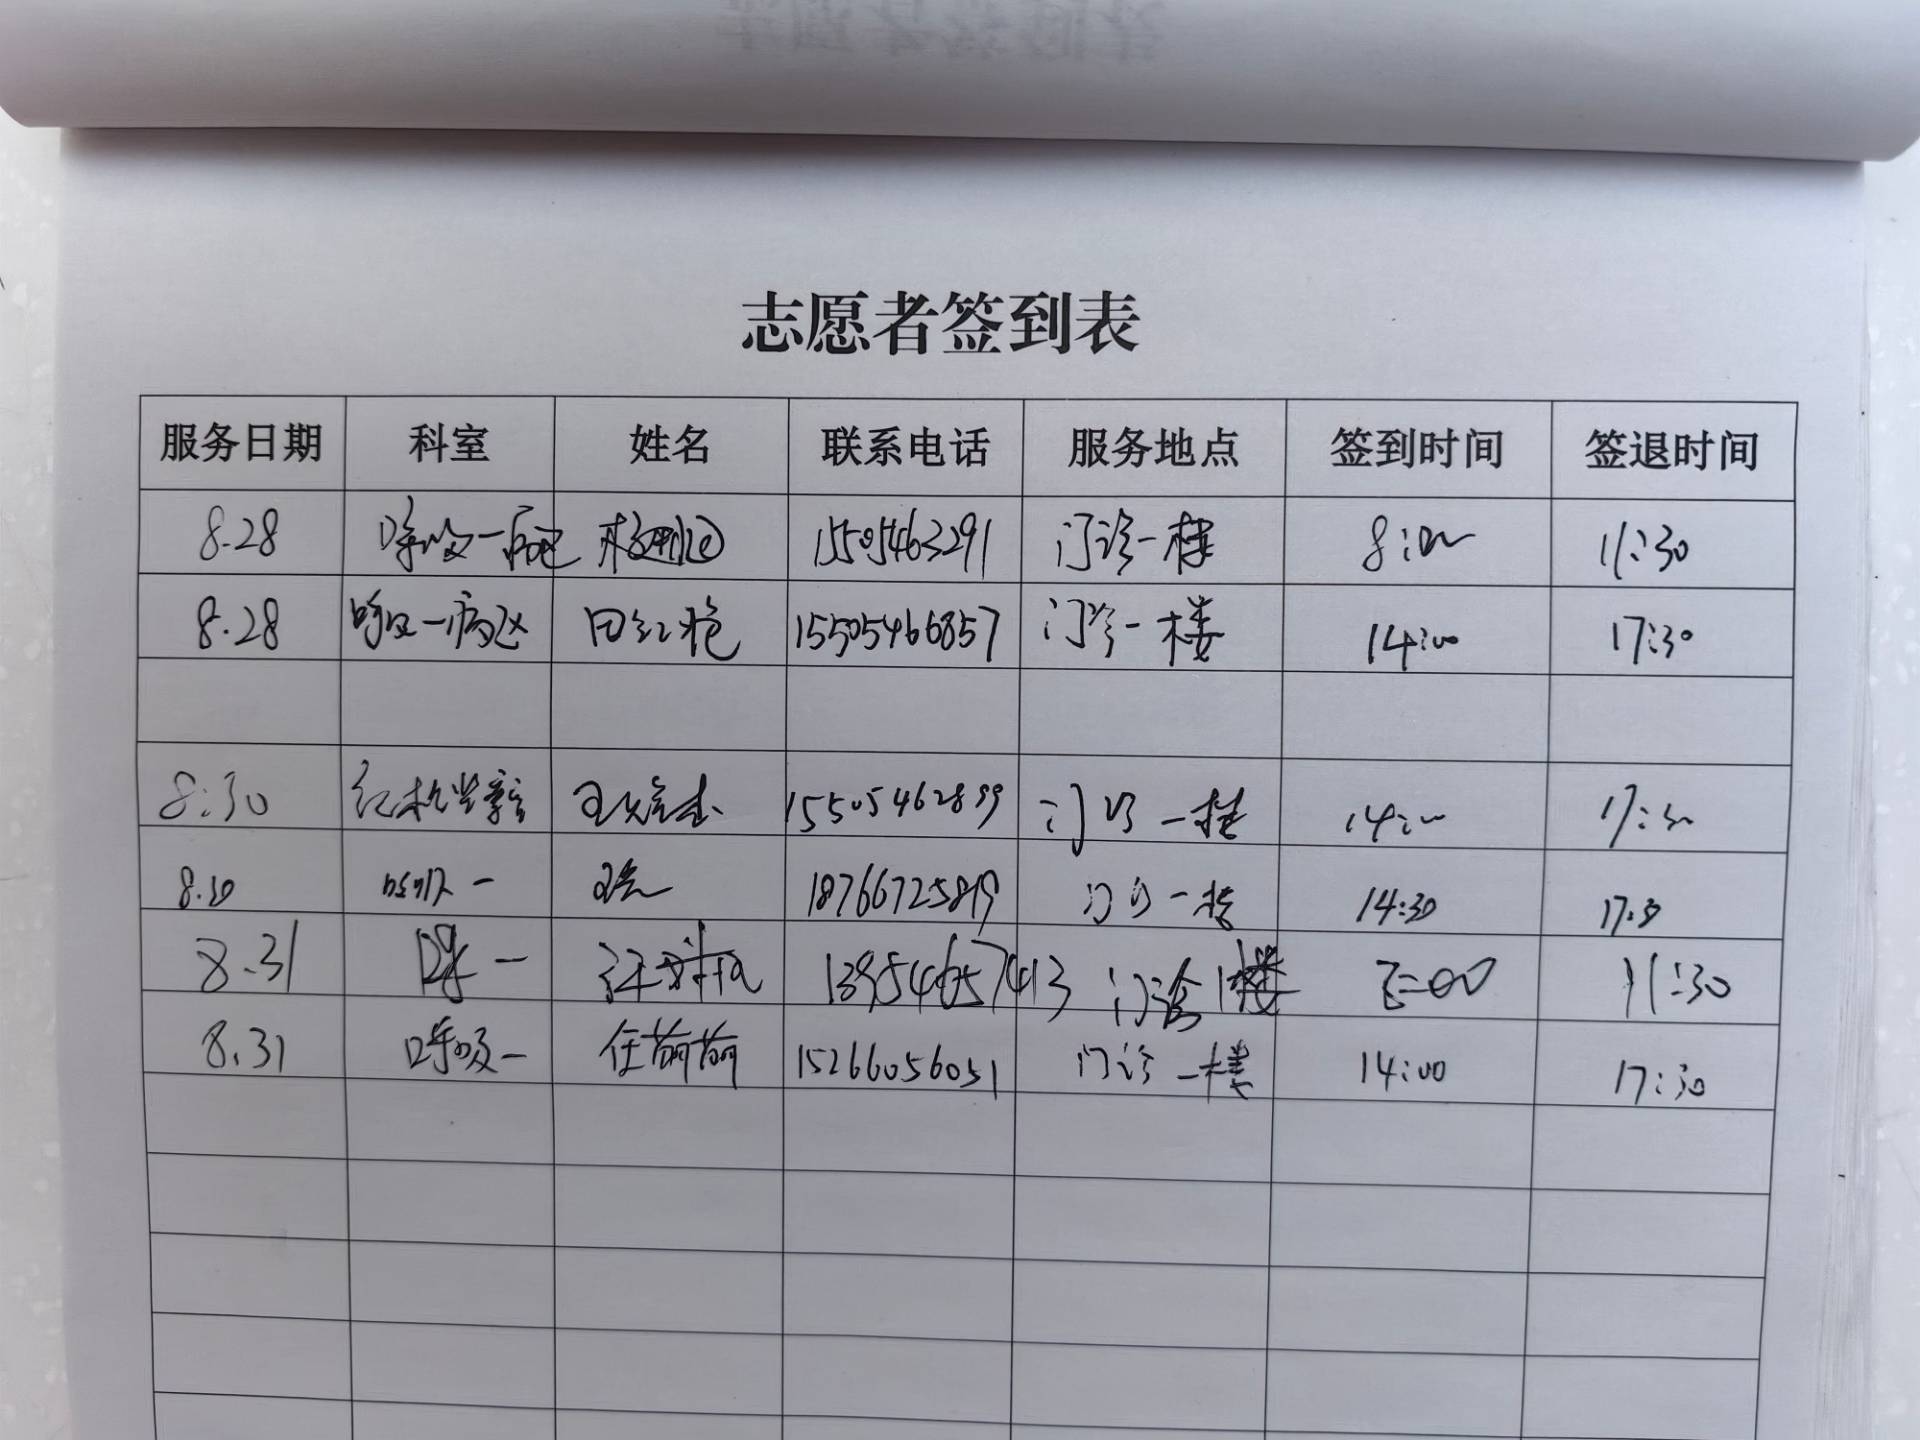 志愿者签到表
服务日期 科室 姓名 联系电话 服务地点 签到时间 签退时间
8.28 呼吸一病区 15505463291 门诊一楼 8:00 11:30
8.28 呼吸一病区 田红艳 15505466857 门诊一楼 14:00 17:30
8:30 15505462899 门诊一楼 14:00 17:30
8.30 呼吸一 18766725819 门诊一楼 14:30 17:30
8.31 呼一 13954657413 门诊1楼 11:30
8.31 呼吸一 任萌萌 15266056051 门诊一楼 14:00 17:30